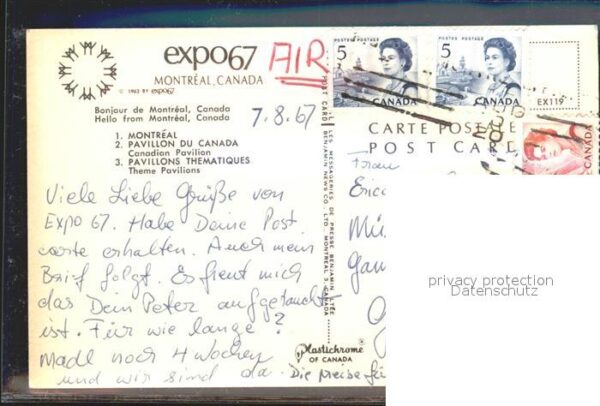 expo67
AIR
MONTRÉAL, CANADA
© 1963 BY expo67
Bonjour de Montréal, Canada
Hello from Montréal, Canada
7.8.67
1. MONTRÉAL
2. PAVILLON DU CANADA
Canadian Pavilion
3. PAVILLONS THÉMATIQUES
Theme Pavilions
Viele Liebe Grüße von
EXPO 67. Habe Deine Post
carte erhalten. Auch mein
Brief folgt. Es freut mich
das Dein Peter aufgetaucht
ist. Für wie lange?
Madl noch 4 Wochen
und wir sind da. Die Preise für
POST CARD
LES MESSAGERIES DE PRESSE BENJAMIN LTÉE
BENJAMIN NEWS CO. LTD. MONTREAL 3, CANADA
Plastichrome
OF CANADA
5 POSTES POSTAGE
CANADA
5 POSTES POSTAGE
CANADA
EX119
CANADA
CARTE POSTALE
POST CARD
Frau
privacy protection
Datenschutz